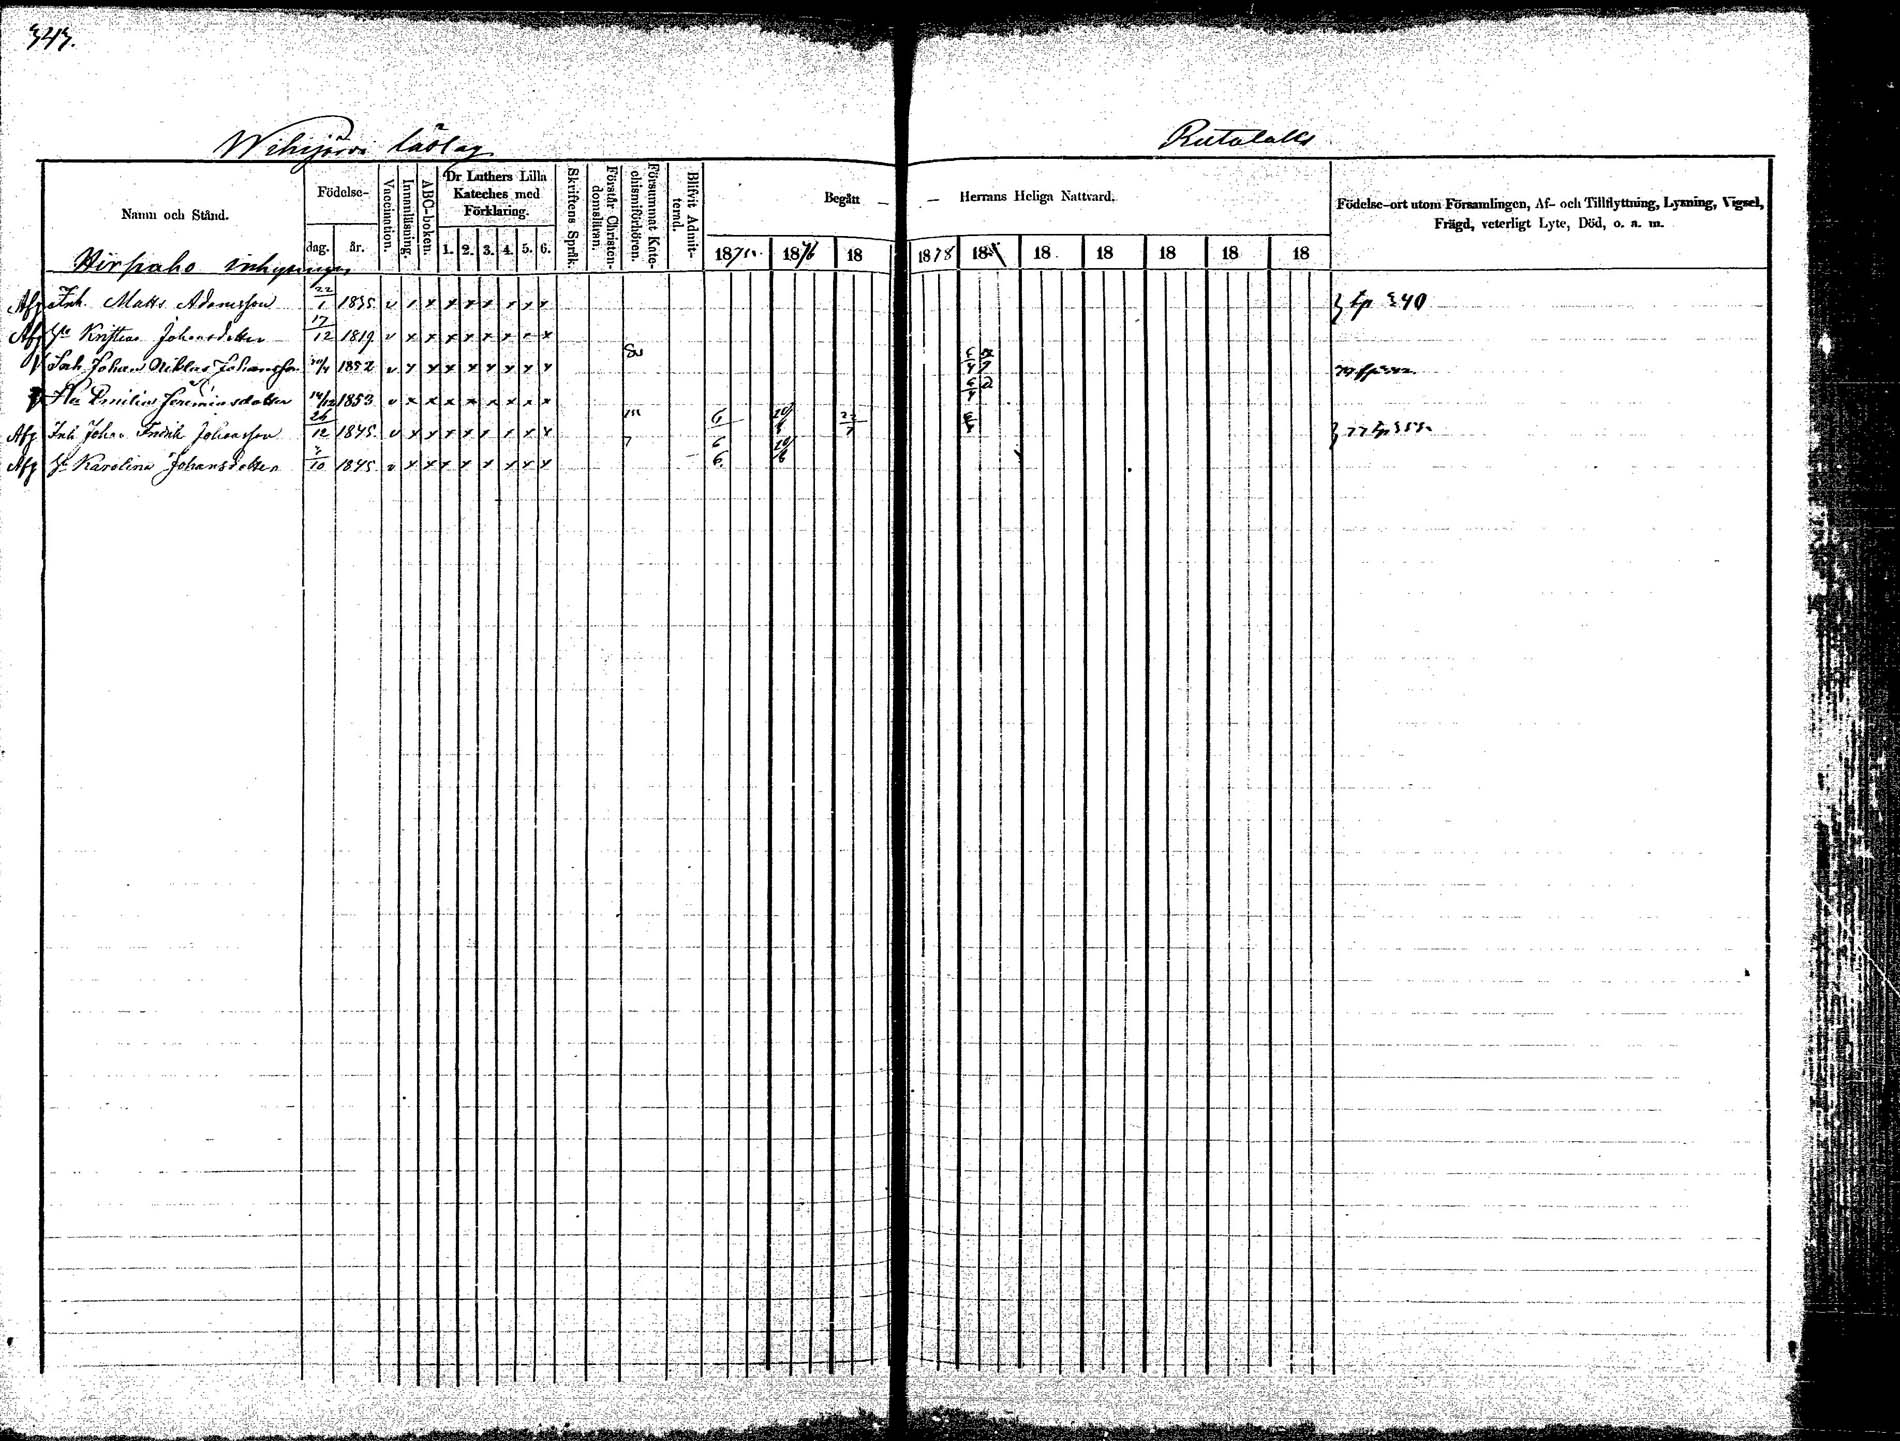 343.
Wihijärvi läslag
Rutalaks
Namn och Stånd.
Födelse-
dag. år.
Vaccination.
Innanläsning.
ABC-boken.
Dr Luthers Lilla Kateches med Förklaring.
1. 2. 3. 4. 5. 6.
Skriftens Språk.
Förstår Christendomsläran.
Försummat Katechismiförhören.
Blifvit Admitterad.
Begått — — Herrans Heliga Nattvard.
1875 1876 18 1878 18 18 18 18 18 18
Födelse-ort utom Församlingen, Af- och Tillflyttning, Lysning, Vigsel,
Frägd, veterligt Lyte, Död, o. s. m.
Hirpaho inhysingar
Afg Inh. Matts Adamsson 22/1 1835 v x x x x x x x x
Afg Hu Kristina Johansdotter 17/12 1819 v x x x x x x x x
Inh. Johan Niklas Johansson 1852 v x x x x x x x x
Hu Emilia Jeremiasdotter 14/12 1853 v x x x x x x x x
Afg Inh Johan Fredrik Johansson 26/12 1845 v x x x x x x x x
Afg Hu Karolina Johansdotter 1845 v x x x x x x x x